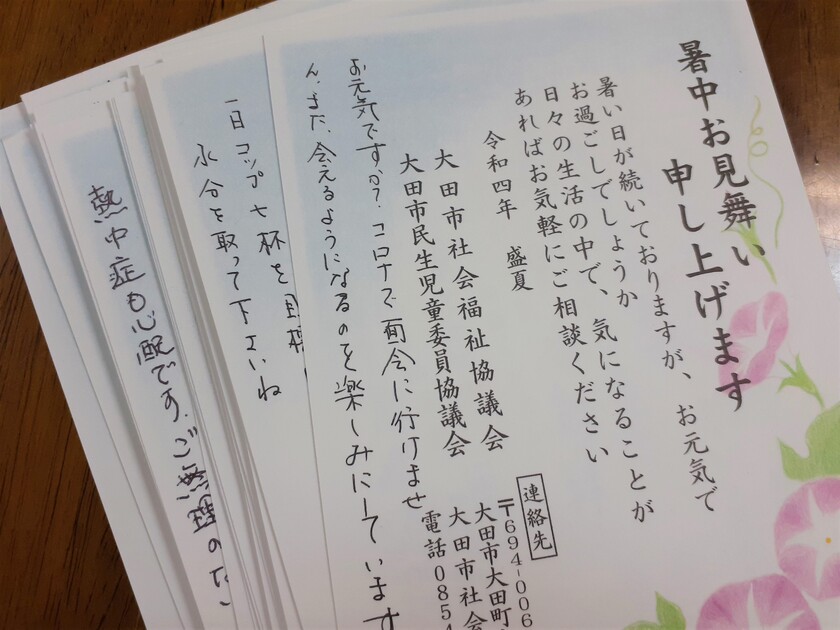 暑中お見舞い
申し上げます
暑い日が続いておりますが、お元気で
お過ごしでしょうか
日々の生活の中で、気になることが
あればお気軽にご相談ください
令和四年 盛夏
大田市社会福祉協議会
大田市民生児童委員協議会
連絡先
〒694-006
大田市大田町
大田市社会
電話0854
お元気ですか?コロナで面会に行けませ
ん。また、会えるようになるのを楽しみにしています
一日コップ七杯を目標
水分を取って下さいね
熱中症も心配です。ご無理のな